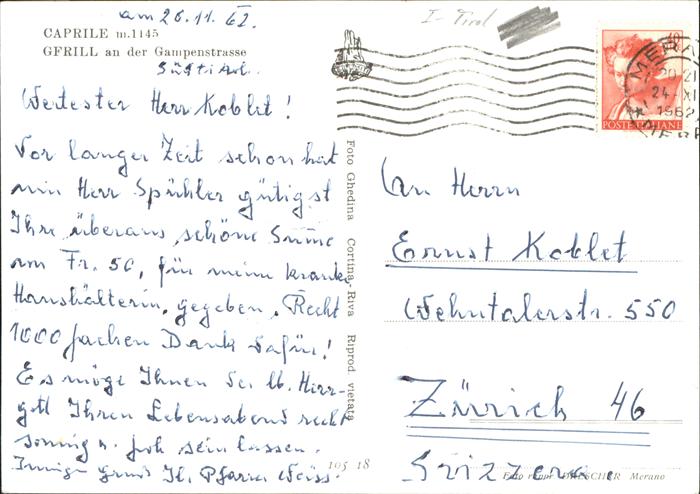 am 26.11.62.
CAPRILE m.1145
GFRILL an der Gampenstrasse
Südtirol.
Wertester Herr Koblet!
Vor langer Zeit schon hat
mir Herr Spühler gütigst
Ihre überaus schöne Summe
von Fr. 50, für meine kranke
Haushälterin, gegeben. Recht
1000 fachen Dank dafür!
Es möge Ihnen der lb. Herr-
gott Ihren Lebensabend recht
sonnig u. froh sein lassen.
Innige Grüß Ih. Pfarrer Weiss.
105 18
Foto Ghedina Cortina - Riva Riprod. vietata
I - Tirol
POSTE ITALIANE
MERANO
20-21
24 XI
1962
An Herrn
Ernst Koblet
Wehntalerstr. 550
Zürich 46
Svizzera
Foto rappr. Merano